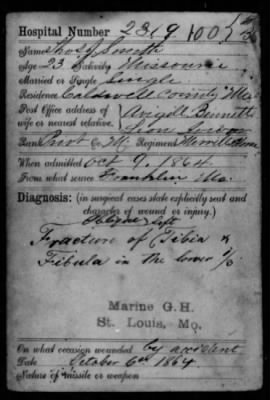 Hospital Number 2819
Name Thos J Smith
Age 23 Nativity Missouri
Married or Single Single
Residence Caldwell County Mo
Post Office address of
wife or nearest relative,
Bennett
Rank Prvt Co. M. Regiment Merrill Horse
When admitted Oct 9, 1864
From what source Franklin Mo.
Diagnosis: (in surgical cases state explicitly seat and
character of wound or injury.)
left
Fracture of Tibia &
Fibula in the lower 1/3
Marine G. H.
St. Louis, Mo.
On what occasion wounded by accident
Date October 6th 1864
Nature of missile or weapon